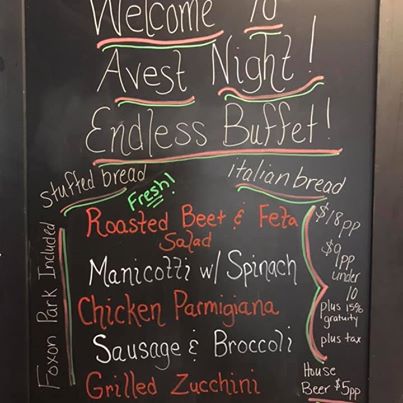 Welcome To
Avest Night!
Endless Buffet!
stuffed bread
italian bread
Fresh!
Roasted Beet & Feta
Salad
Manicotti w/ Spinach
Chicken Parmigiana
Sausage & Broccoli
Grilled Zucchini
Foxon Park Included
$18pp
$9
pp
under
10
plus 15%
gratuity
plus tax
House
Beer $5pp